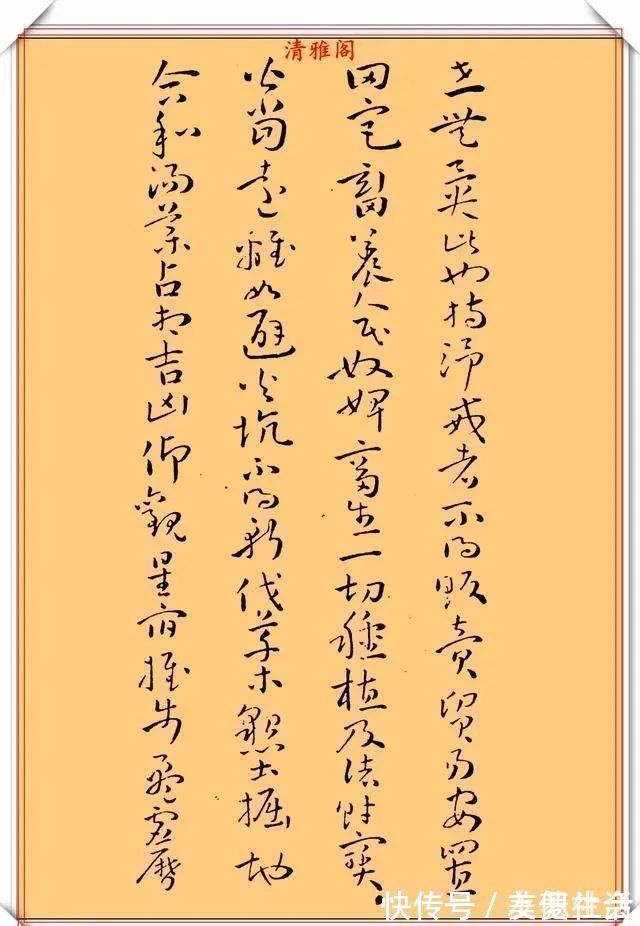 清雅阁
世無異此也持淨戒者不得販賣貿易安置
田宅畜養人民奴婢畜生一切種植及諸財寶
皆當遠離如避火坑不得斬伐草木墾土掘地
合和湯藥占相吉凶仰觀星宿推步盈虛曆
快传号 /